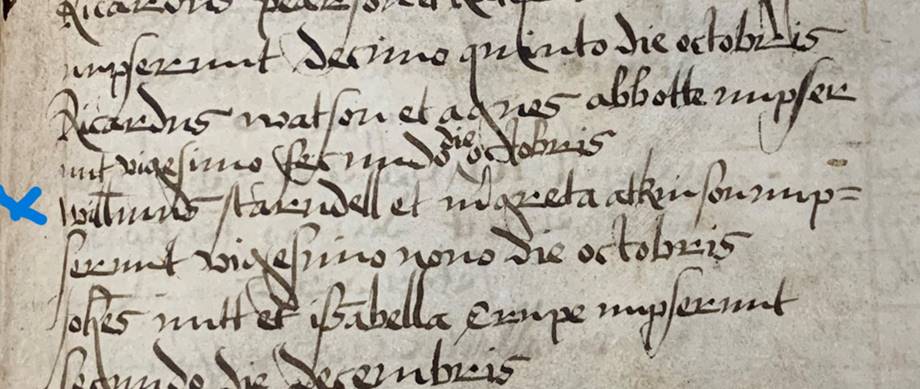 Ricardus
nupserunt decimo quinto die octobris
Ricardus watson et agnes abbotte nupser
unt vigesimo secundo die octobris
willmus starndell et mgreta atkinson nup=
serunt vigesimo nono die octobris
Johes nutt et isabella Crupe nupserunt
secundo die decembris